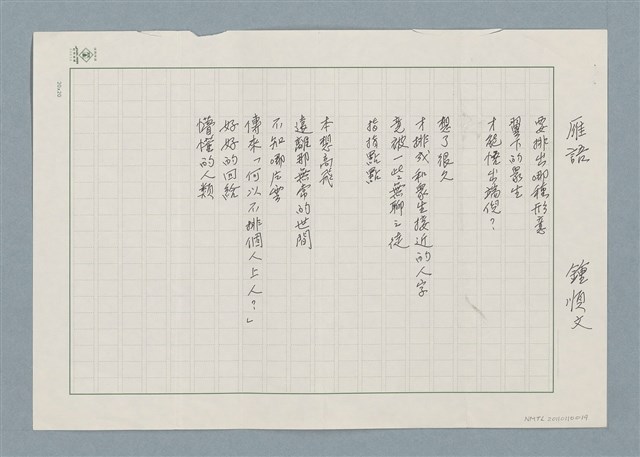 雁語
鍾順文
要排出哪種形意
翼下的眾生
才能悟出端倪？
想了很久
才排成和眾生接近的人字
竟被一些無聊之徒
指指點點
本想高飛
遠離那無常的世間
不知哪片雲
傳來「何以不排個人上人？」
好好的回給
懵懂的人類
20x20